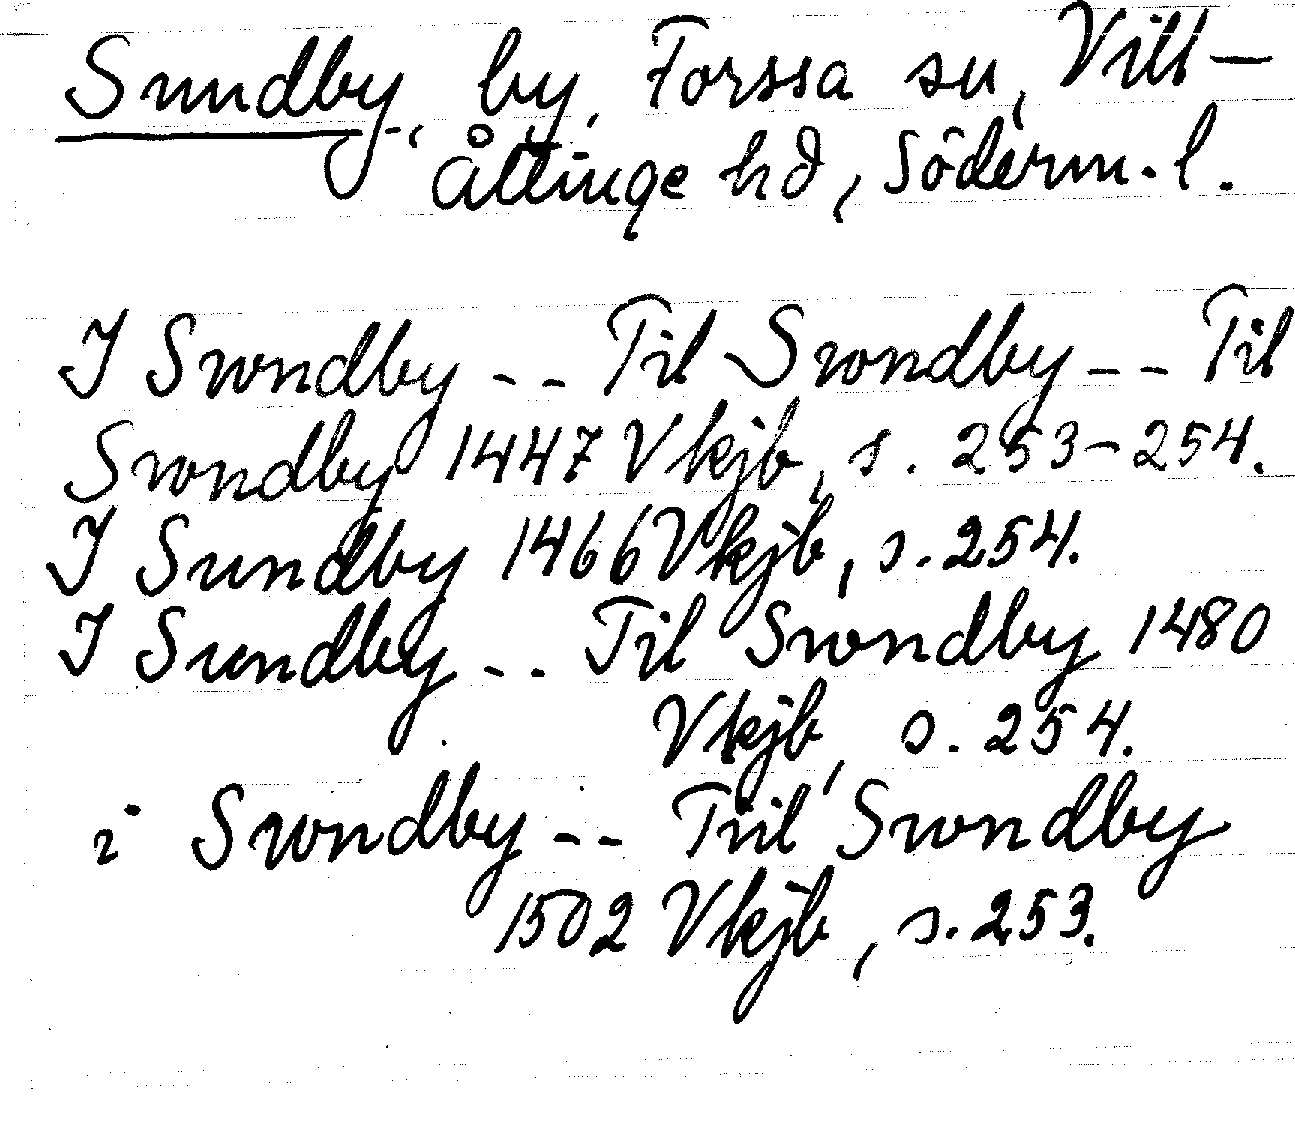 Sundby, by, Forssa sn, Vill-
åttinge hd, Söderm. l.
I Swndby -- Til Swndby -- Til
Swndby 1447 Vkjb, s. 253-254.
I Sundby 1466 Vkjb, s. 254.
I Sundby -- Til Swndby 1480
Vkjb, s. 254.
i Swndby -- Tiil Swndby
1502 Vkjb, s. 253.